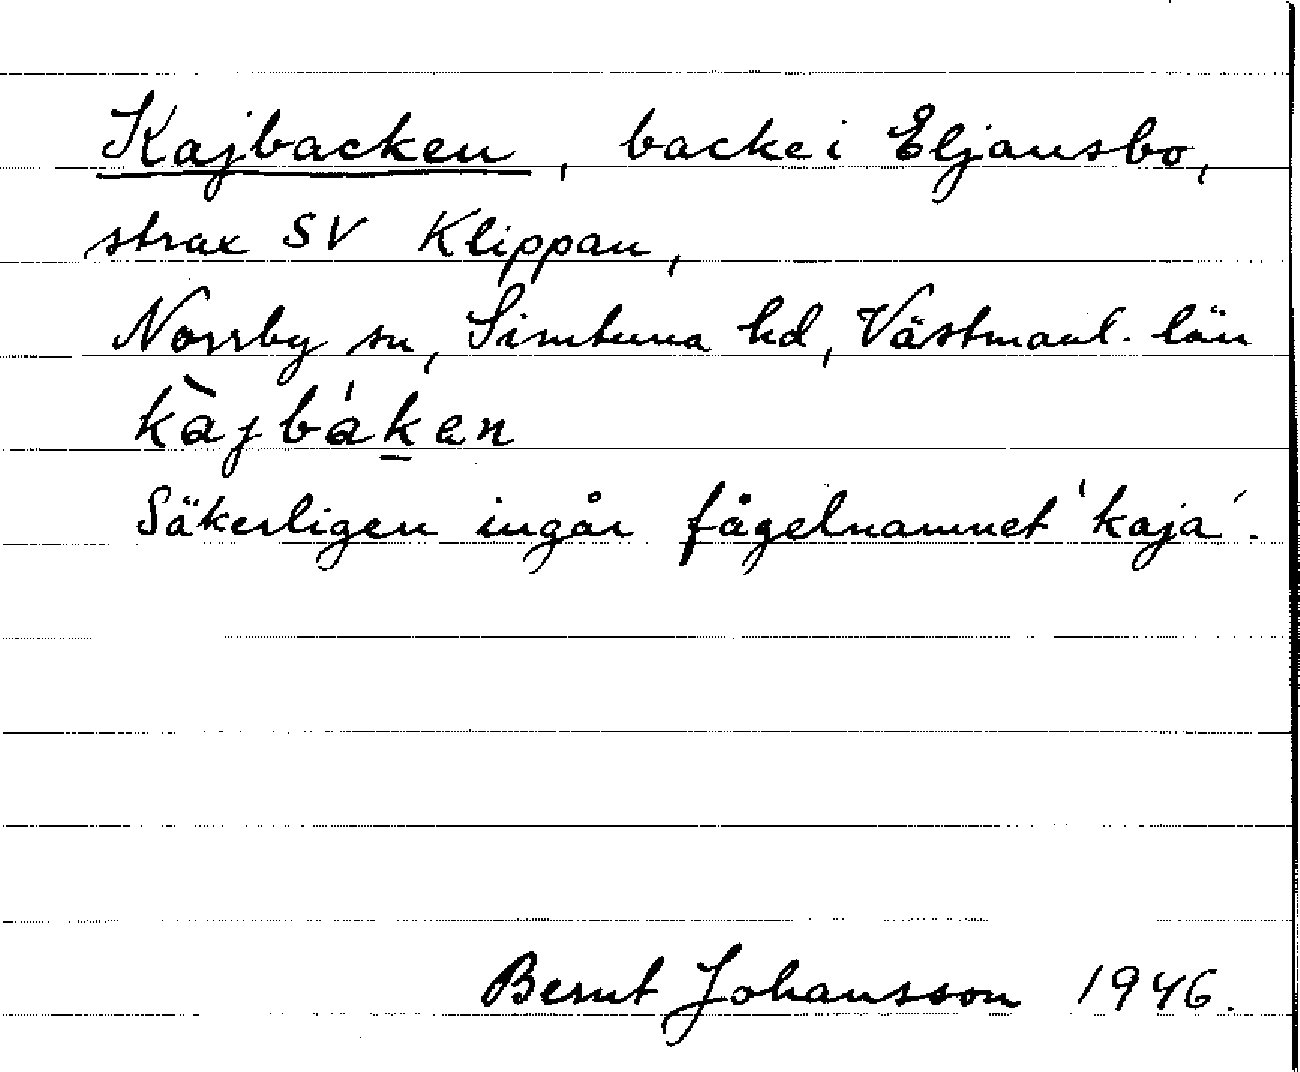 Kajbacken, backe i Eljansbo,
strax SV Klippan,
Norrby sn, Simtuna hd, Västmanl. län
kàjbákan
Säkerligen ingår fågelnamnet 'kaja'.
Bernt Johansson 1946.